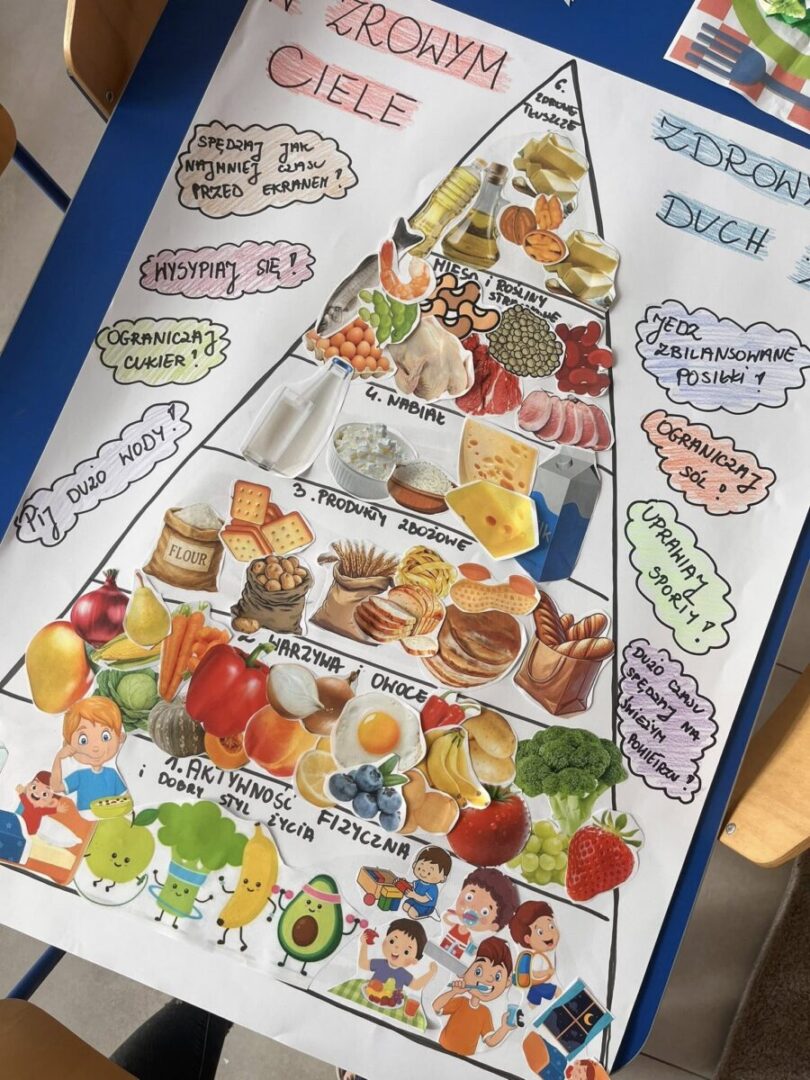 ZROWYM
CIELE
ZDROWY
DUCH
SPĘDZAJ JAK
NAJMNIEJ CZASU
PRZED EKRANEM!
WYSYPIAJ SIĘ!
OGRANICZAJ
CUKIER!
PIJ DUŻO WODY!
6.
ZDROWE
TŁUSZCZE
MIĘSO i ROŚLINY
4. NABIAŁ
3. PRODUKTY ZBOŻOWE
FLOUR
2. WARZYWA i OWOCE
1. AKTYWNOŚĆ FIZYCZNA
i DOBRY STYL ŻYCIA
JEDZ
ZBILANSOWANE
POSIŁKI!
OGRANICZAJ
SÓL!
UPRAWIAJ
SPORTY!
DUŻO CZASU
SPĘDZAJ NA
ŚWIEŻYM
POWIETRZU!